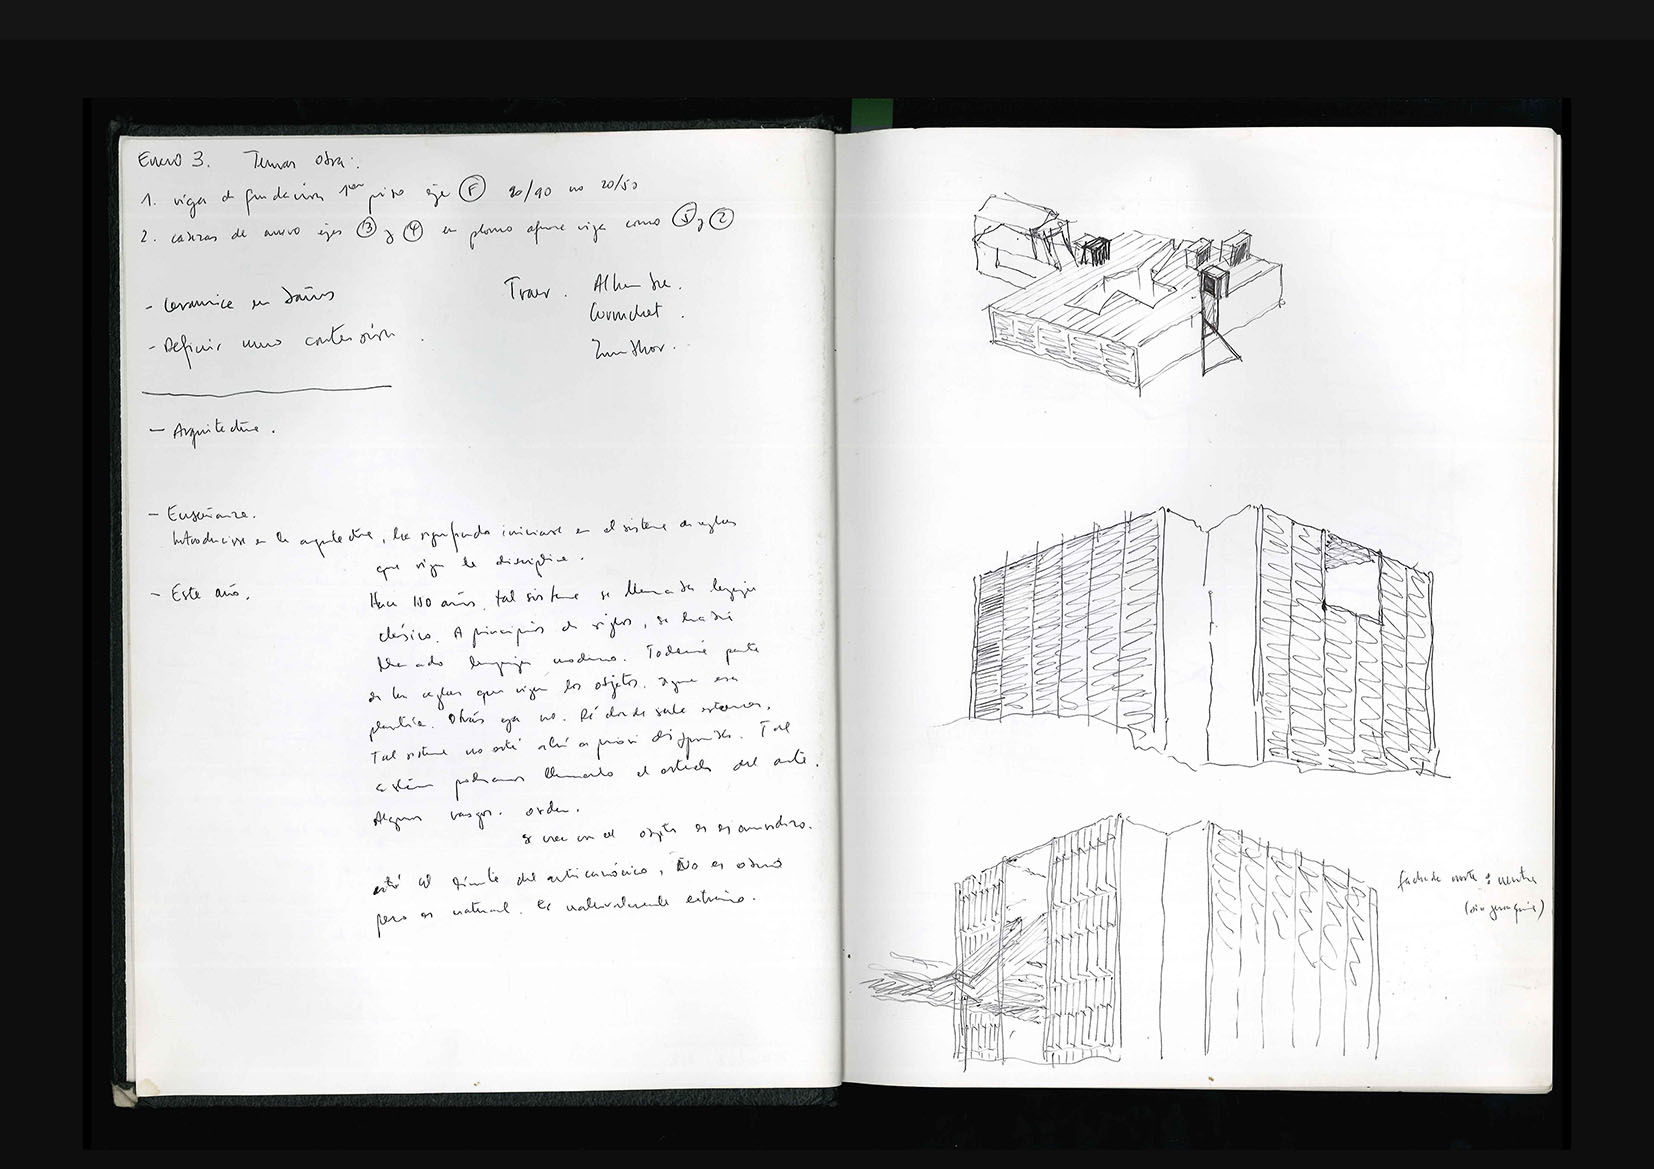 Enero 3. Temas obra:.
1. viga de fundación 1er piso eje F 20/90 no 20/50
2. de muro ejes 3 y 4 en plomo viga como 5 y 2
- Ceramica en baños
- Definir muro contención.
Traer. Alhambre.
Corvichet.
Zumthor.
- Arquitectura.
- Enseñanza.
Introducirse en la arquitectura, ha significado iniciarse en el sistema de reglas
que rige la disciplina.
- Este año.
Hace 100 años, tal sistema se llamaba lenguaje
clásico. A principios de siglo, se habría
llamado lenguaje moderno. Todavía parte
de las reglas que rigen los objetos, sigue esa
Otras ya no. De donde sale entonces,
Tal sistema no está ahí a priori disponible. Tal
sistema podríamos llamarlo el estado del arte.
Algunos rasgos. orden.
se cree en el objeto es
está al límite del anticanónico, No es
pero es natural. Es naturalmente extraño.
fachada norte : neutra
(sin jerarquía)